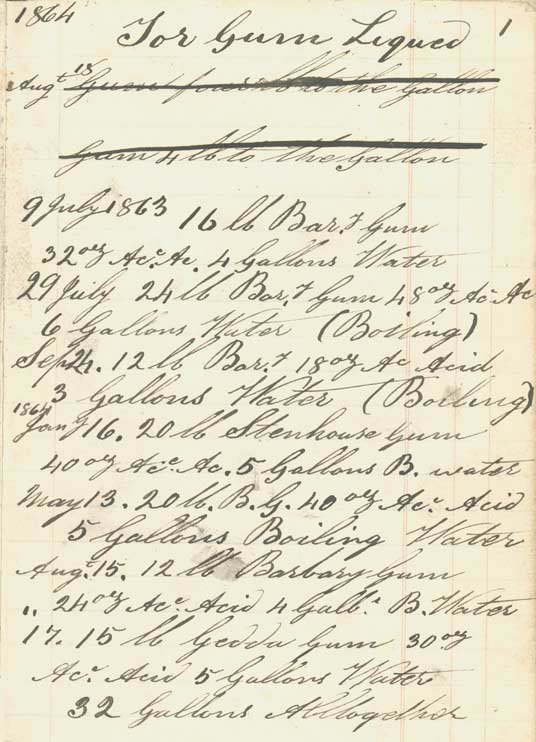 1864
For Gum Liqued 1
Augt 18 Gum four lb to the Gallon
Gum 4 lb to the Gallon
9 July 1863 16 lb Bary Gum
32 oz Acc. Ac. 4 Gallons Water
29 July 24 lb Bary Gum 48 oz Ac. Ac
6 Gallons Water (Boiling)
Sep 24. 12 lb Bary 18 oz Ac Acid
3 Gallons Water (Boiling)
1864
Jany 16. 20 lb Stenhouse Gum
40 oz Acc. Ac. 5 Gallons B. water
May 13. 20 lb. B. G. 40 oz Acc. Acid
5 Gallons Boiling Water
Augt. 15. 12 lb Barbary Gum
,, 24 oz Acc. Acid 4 Gall B. Water
17. 15 lb Gedda Gum 30 oz
Acc. Acid 5 Gallons Water
32 Gallons Alltogether